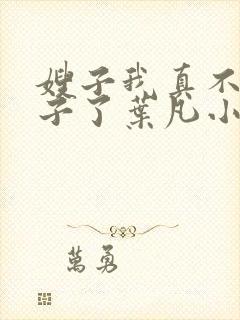 嫂子我真不
子了葉凡小
萬勇